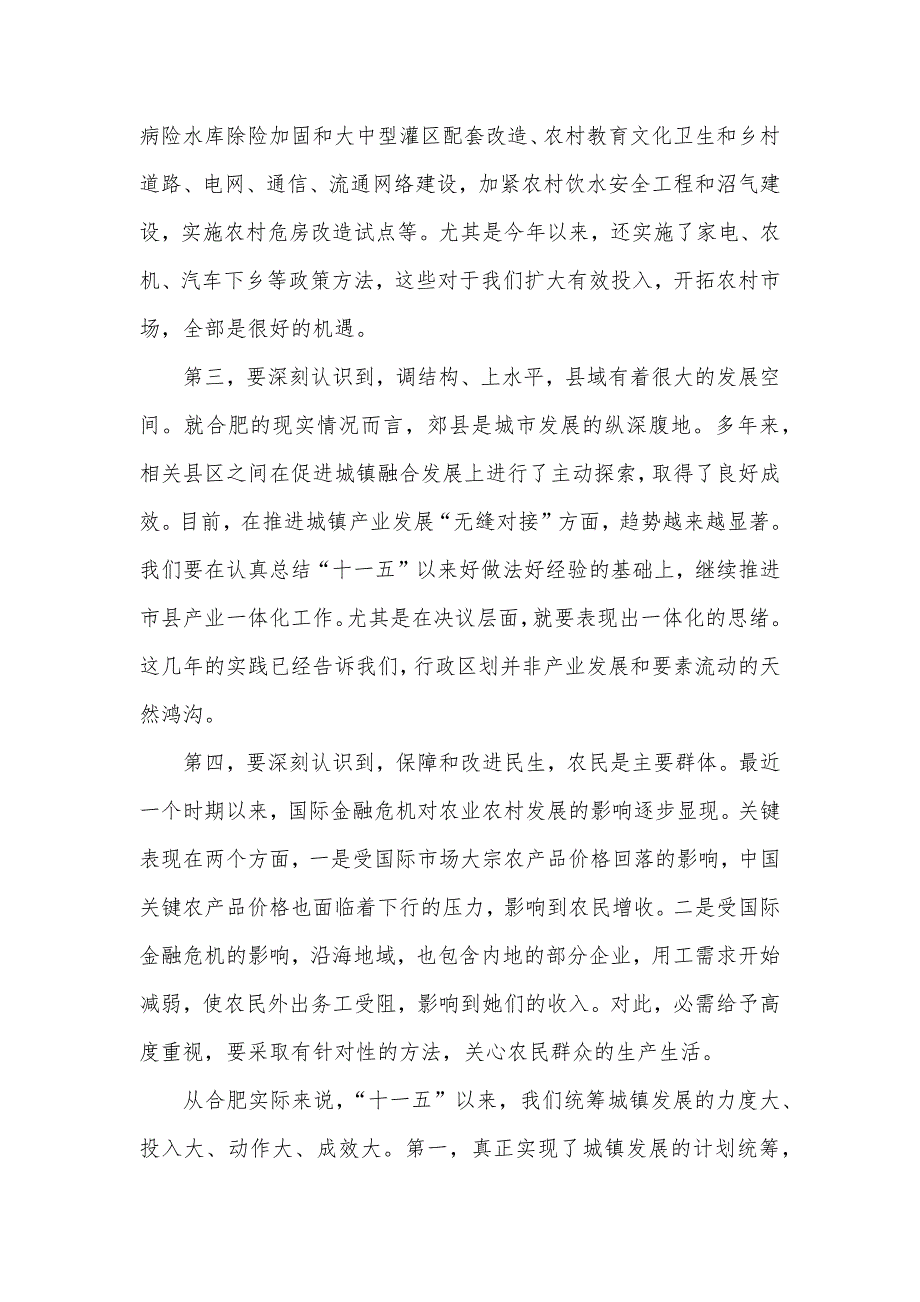 病险水库除险加固和大中型灌区配套改造、农村教育文化卫生和乡村
道路、电网、通信、流通网络建设，加紧农村饮水安全工程和沼气建
设，实施农村危房改造试点等。尤其是今年以来，还实施了家电、农
机、汽车下乡等政策方法，这些对于我们扩大有效投入，开拓农村市
场，全部是很好的机遇。
第三，要深刻认识到，调结构、上水平，县域有着很大的发展空
间。就合肥的现实情况而言，郊县是城市发展的纵深腹地。多年来，
相关县区之间在促进城镇融合发展上进行了主动探索，取得了良好成
效。目前，在推进城镇产业发展“无缝对接”方面，趋势越来越显著。
我们要在认真总结“十一五”以来好做法好经验的基础上，继续推进
市县产业一体化工作。尤其是在决议层面，就要表现出一体化的思绪。
这几年的实践已经告诉我们，行政区划并非产业发展和要素流动的天
然鸿沟。
第四，要深刻认识到，保障和改进民生，农民是主要群体。最近
一个时期以来，国际金融危机对农业农村发展的影响逐步显现。关键
表现在两个方面，一是受国际市场大宗农产品价格回落的影响，中国
关键农产品价格也面临着下行的压力，影响到农民增收。二是受国际
金融危机的影响，沿海地域，也包含内地的部分企业，用工需求开始
减弱，使农民外出务工受阻，影响到她们的收入。对此，必需给予高
度重视，要采取有针对性的方法，关心农民群众的生产生活。
从合肥实际来说，“十一五”以来，我们统筹城镇发展的力度大、
投入大、动作大、成效大。第一，真正实现了城镇发展的计划统筹，